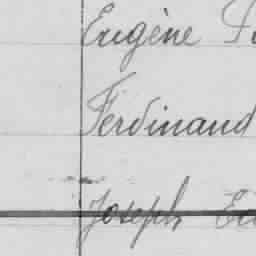 Eugène
Ferdinand
Joseph